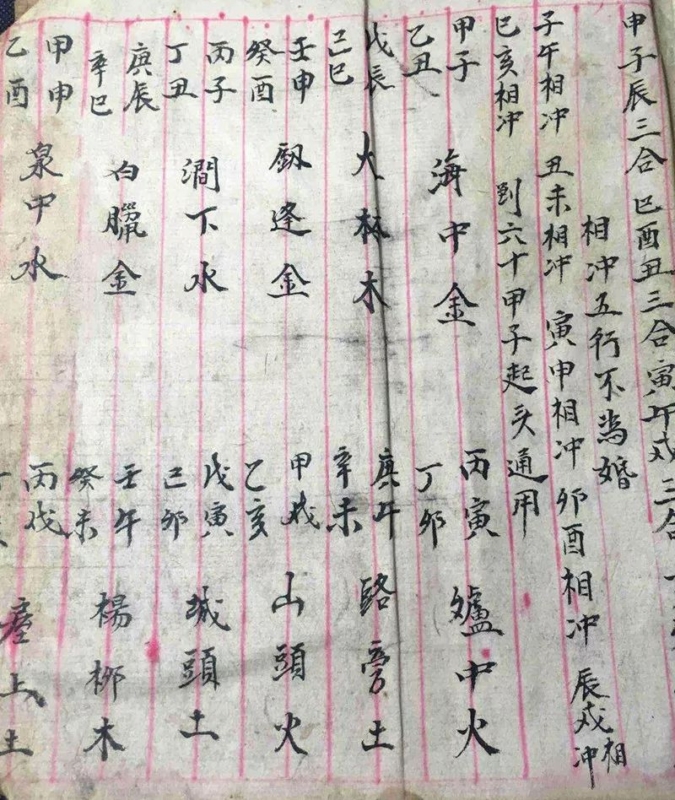 申子辰三合 巳酉丑三合 寅午戌三合
相冲五行不為婚
子午相冲 丑未相冲 寅申相冲 卯酉相冲 辰戌相冲
巳亥相冲 到六十甲子起头通用
甲子 乙丑 海中金 丙寅 丁卯 爐中火
戊辰 己巳 大林木 庚午 辛未 路旁土
壬申 癸酉 釼逢金 甲戌 乙亥 山頭火
丙子 丁丑 澗下水 戊寅 己卯 城頭土
庚辰 辛巳 白臘金 壬午 癸未 楊柳木
甲申 乙酉 泉中水 丙戌 上土